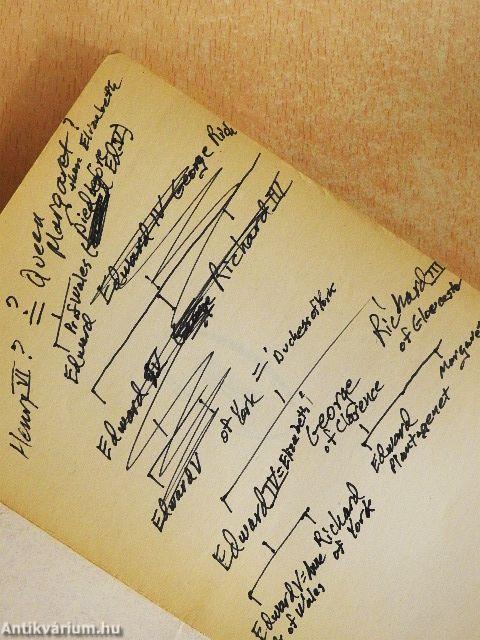 Henry VI ? = Queen Margaret?
Edward Pr of Wales (Died before
Edward IV George Rich
Edward IV George Richard III
Edward V
of York = Duchess of York
Edward IV = Elizabeth
George of Clarence
Richard III of Gloucester
Edward Plantagenet
Edward V =
of Wales
Richard of York
Antikvárium.hu